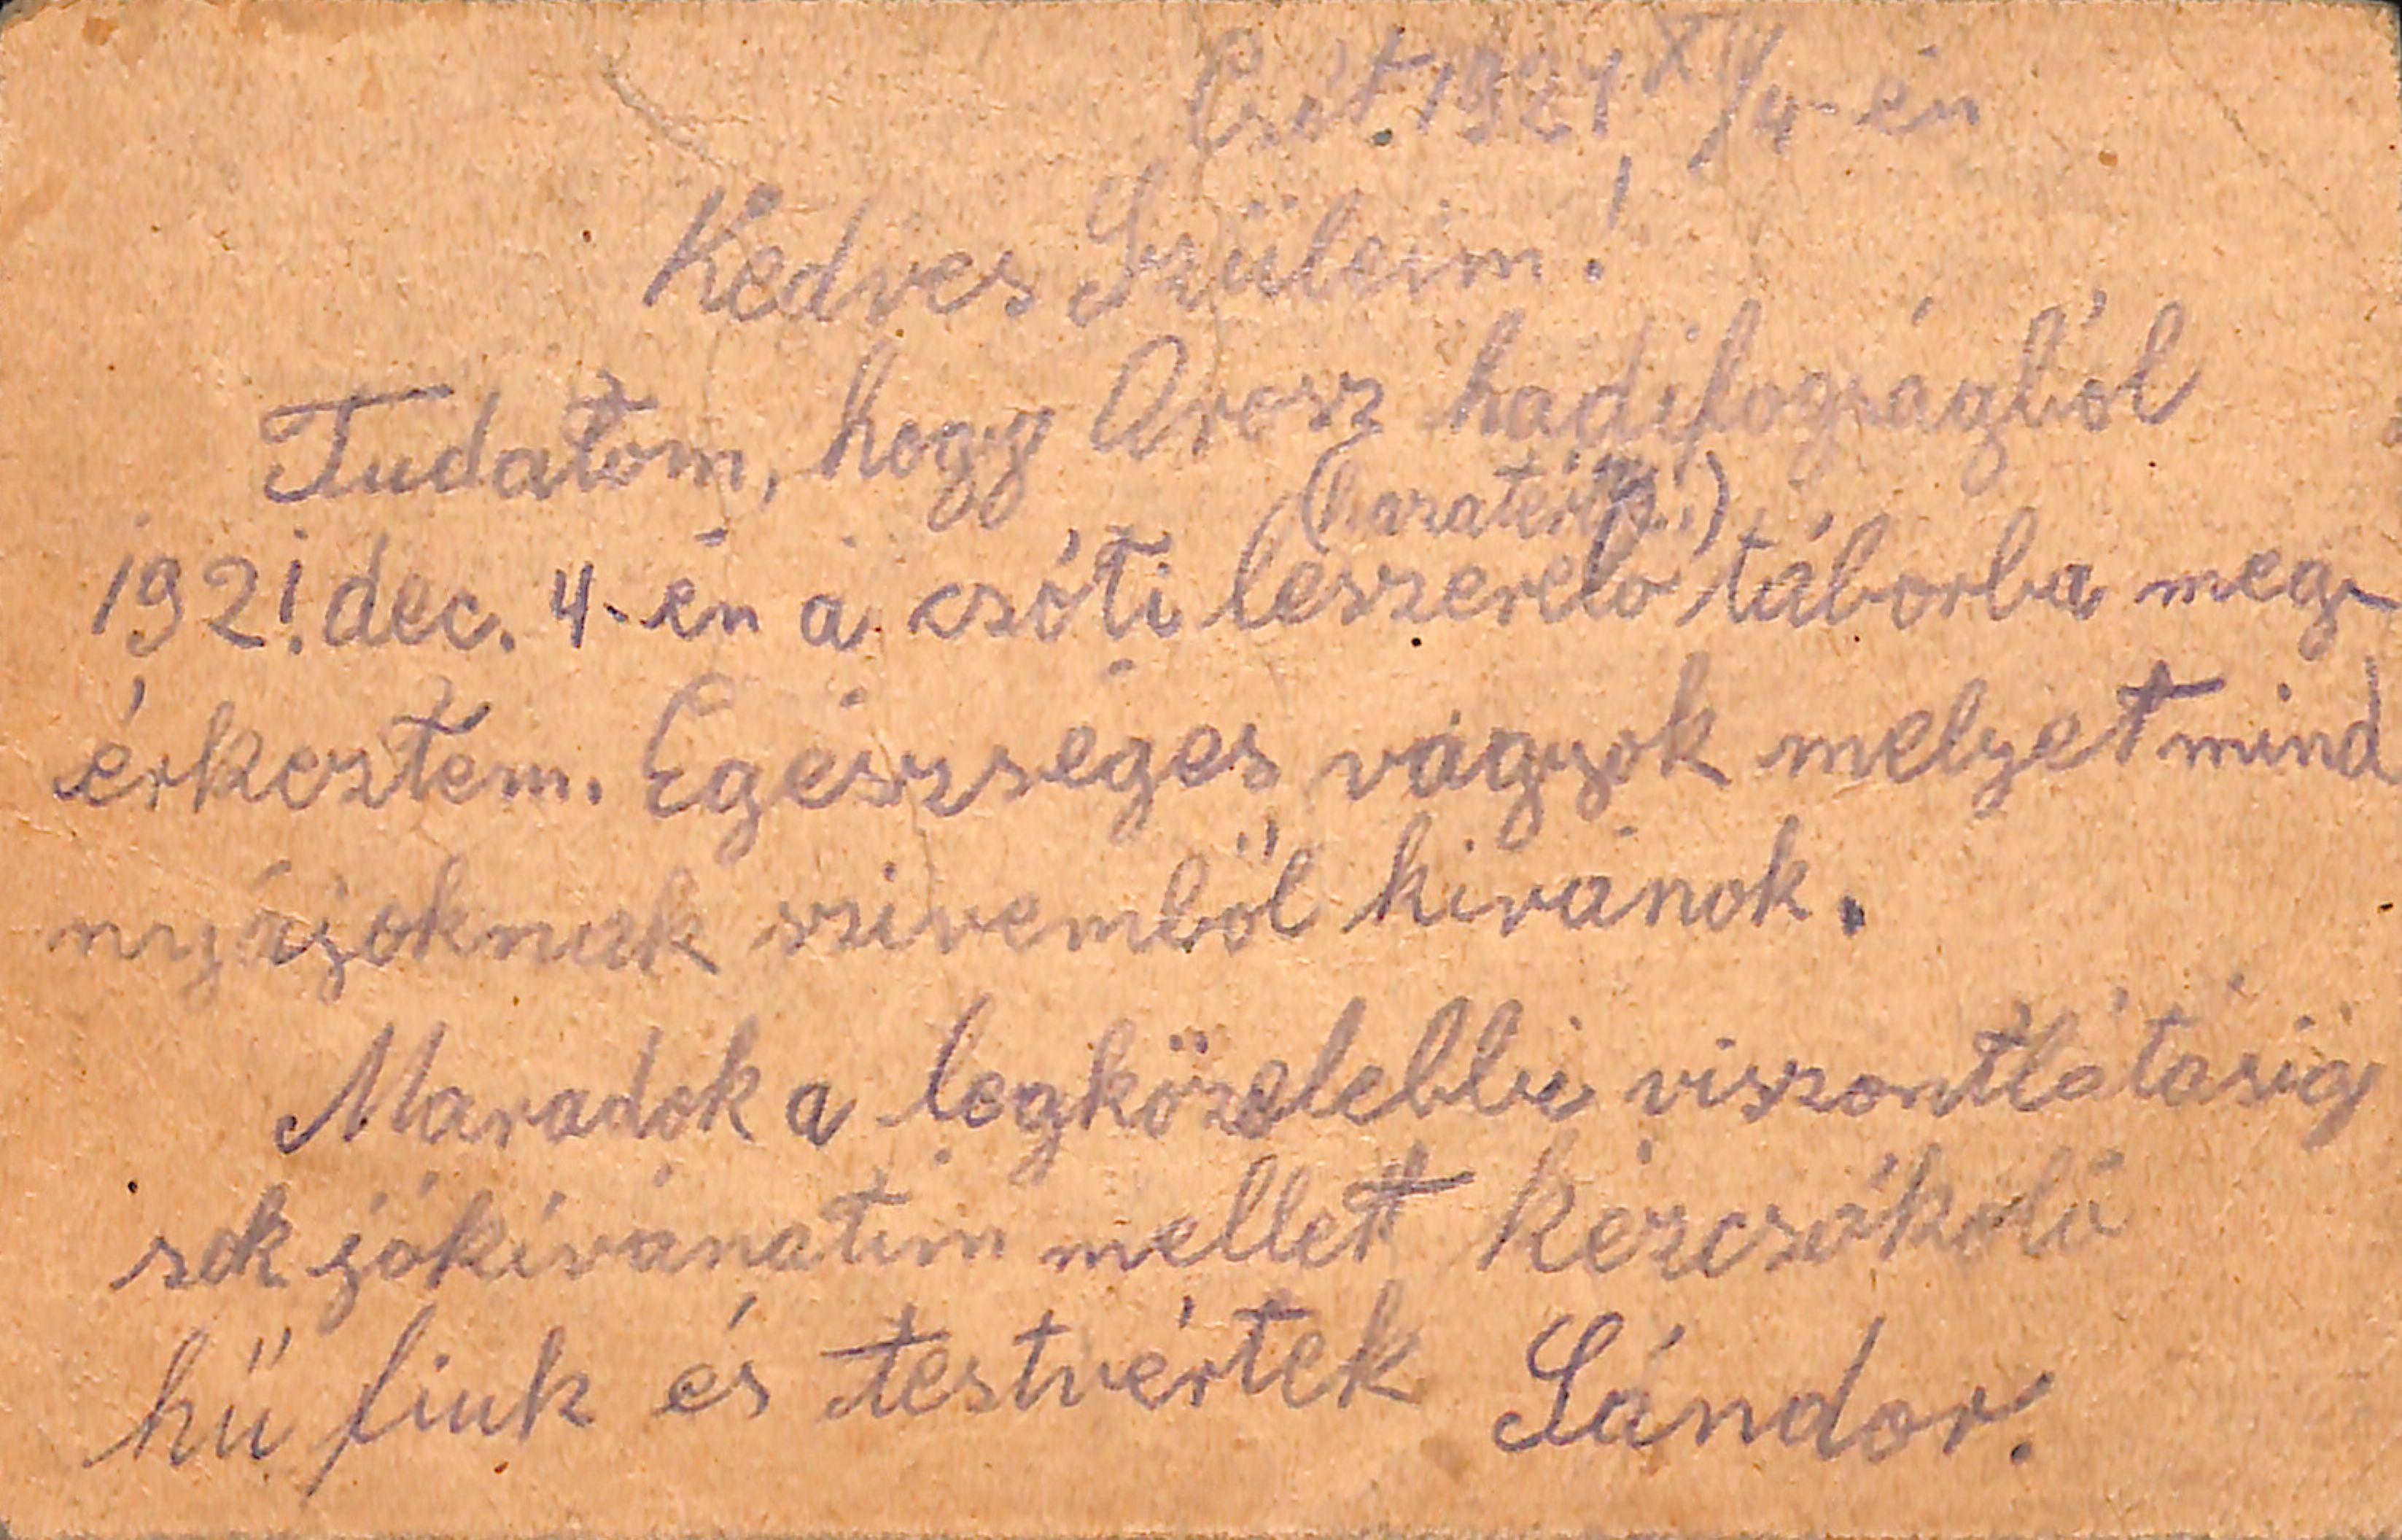 Csót 1921 XII/4-én
Kedves Szüleim!
Tudatom, hogy Orosz hadifogságból
1921. dec. 4-én a csóti leszerelő táborba meg-
érkeztem. Egészséges vagyok melyet mind
nyájoknak szivemből kivánok.
Maradok a legközelebbi viszontlátásig
sok jókívánatim mellett kézcsókoló
hű fiuk és testvértek Sándor.